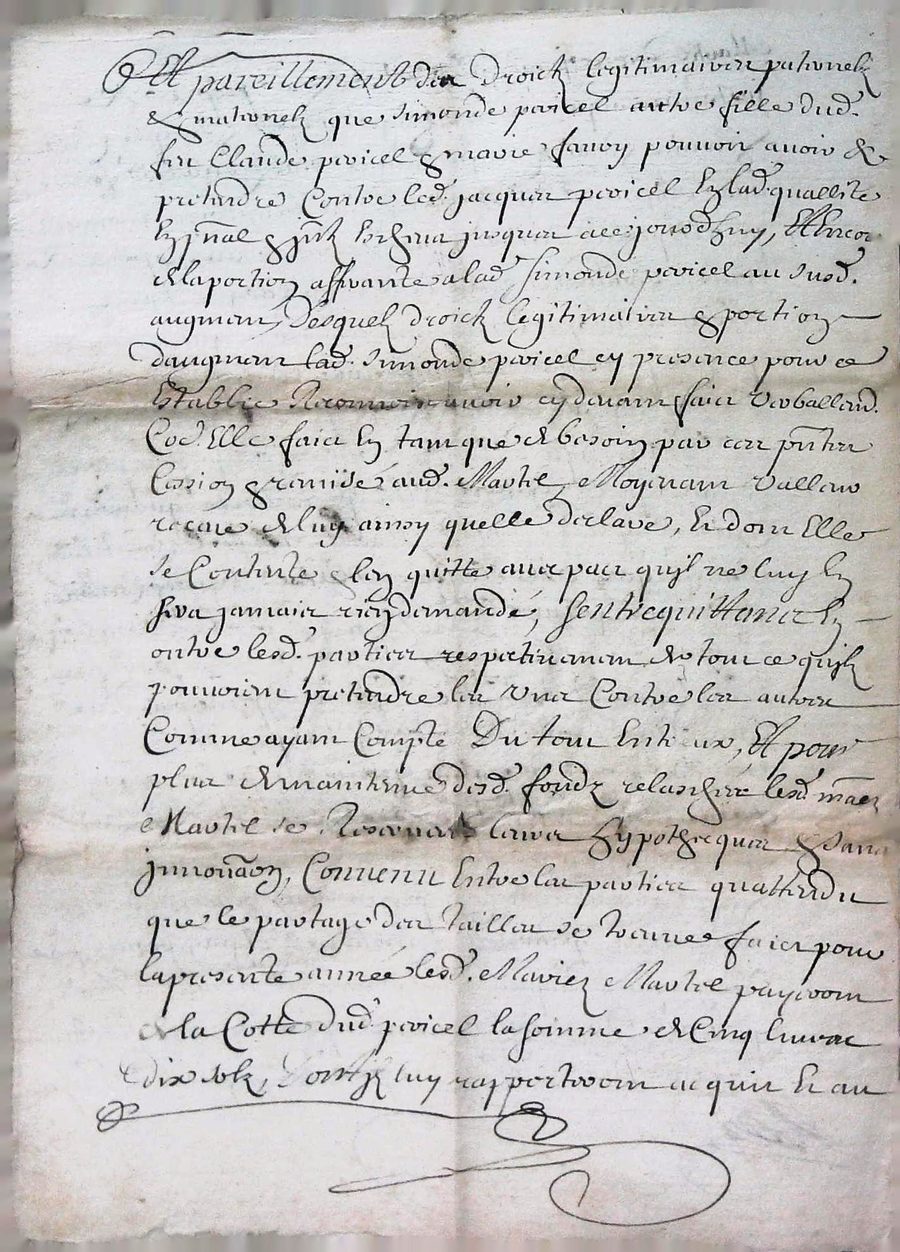 Et pareillement des droictz legitimaires paternelz
& maternelz que simonde pericel autre fille dud.
feu Claude pericel & marie favy pouvoir avoir &
pretendre Contre led. jacques pericel En lad. quallite
En p̄nal & jn̄tz Escheus jusques a ce jourdhuy, Et Encor
de la portion affrante a lad simonde pericel au susd.
augment, Desquelz droictz legitimaires & portion
daugment lad. simonde pericel cy presente pour ce
Establie Recognoist avoir cy devant faict verballemt.
Co.e Elle faict En tant que de besoin par ces pn̄tes
Cession & remise aud. Martel, Moyenant valleur
receue de luy ainsy quelle declare, Et dont Elle
se Contente & len quitte avec pact quyl ne luy En
sera jamais rien demandé, sentrequittence En
outre lesd. parties respectivement de tout ce quylz
pouvoient pretendre les unes Contre les autres
Comme ayant Compte Du tout Entreux, Et pour
plus de maintenue desd. fondz relaschés lesd. mariez
Martel se Reservent leurs hypotheques & sans
jnnovaōn, Convenu Entre les parties quattendu
que le partage des tailles se treuve faict pour
la presente année lesd. Mariez Martel payeront
de la Cotte dud. pericel la somme de Cinq livres
dix solz, Dont ilz luy rapporteront acquit Et au